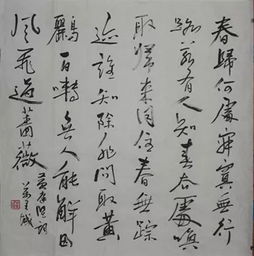 春歸何處寂寞無行
路若有人知春去處喚
取歸來同住春無踪
迹誰知除非問取黃
鸝百囀無人能解因
風飛過薔薇
黃庭堅詞